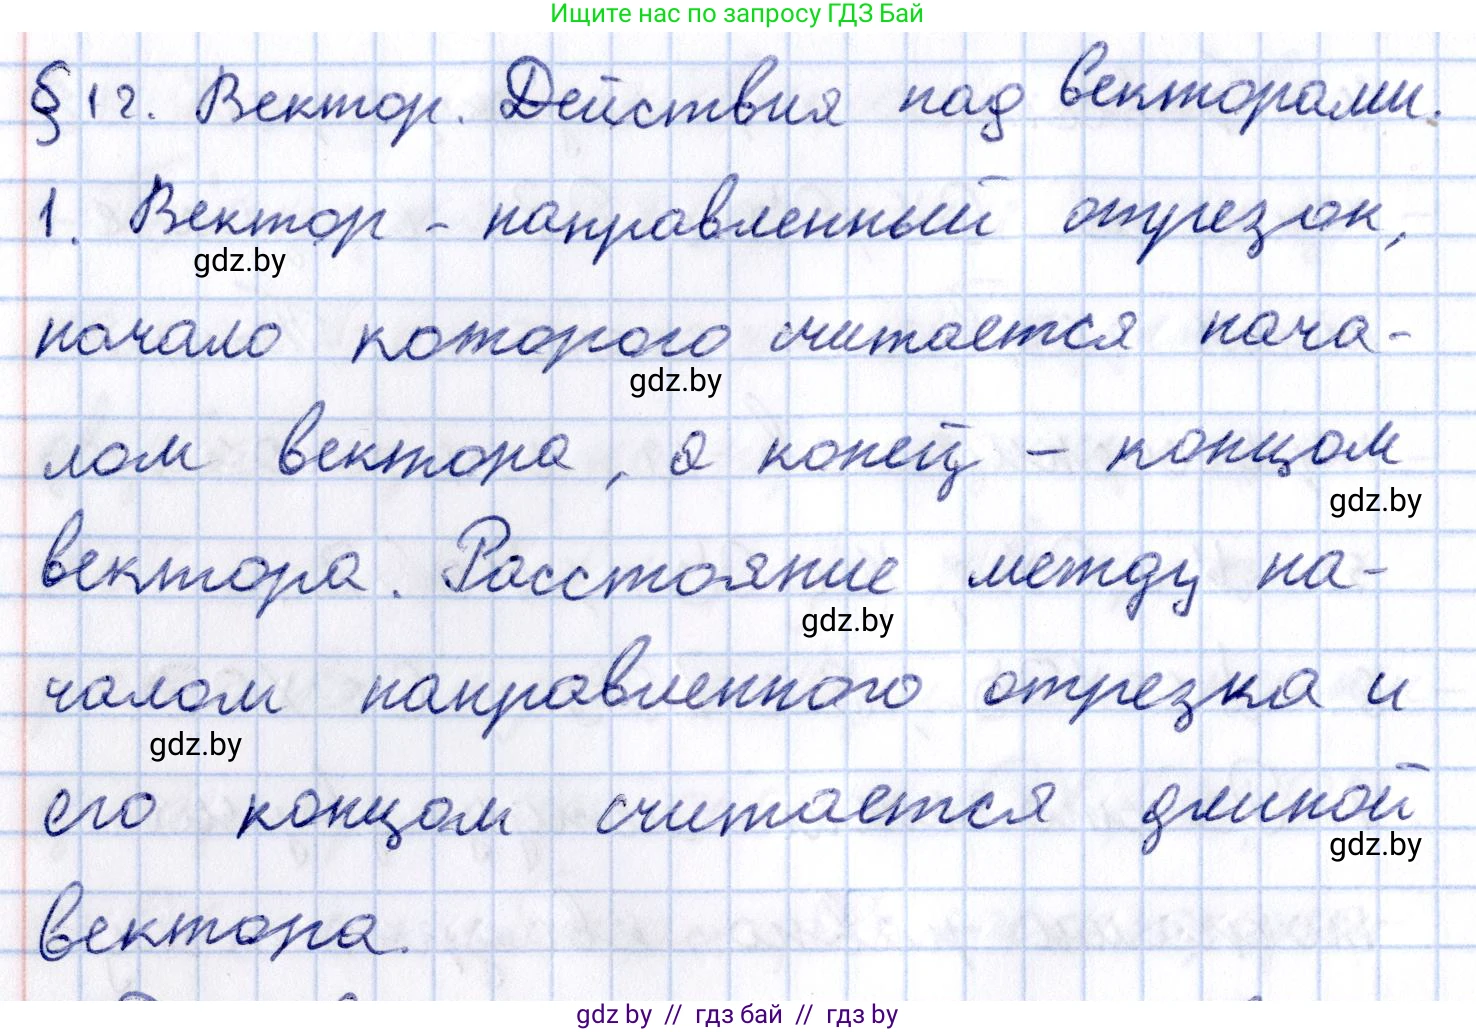 Ищите нас по запросу ГДЗ Бай
§ 12. Вектор. Действия над векторами.
1. Вектор - направленный отрезок,
gdz.by
начало которого считается нача-
gdz.by
лом вектора, а конец - концом
gdz.by
вектора. Расстояние между на-
gdz.by
чалом направленного отрезка и
gdz.by
его концом считается длиной
gdz.by
вектора.
gdz by // гдз бай // гдз by